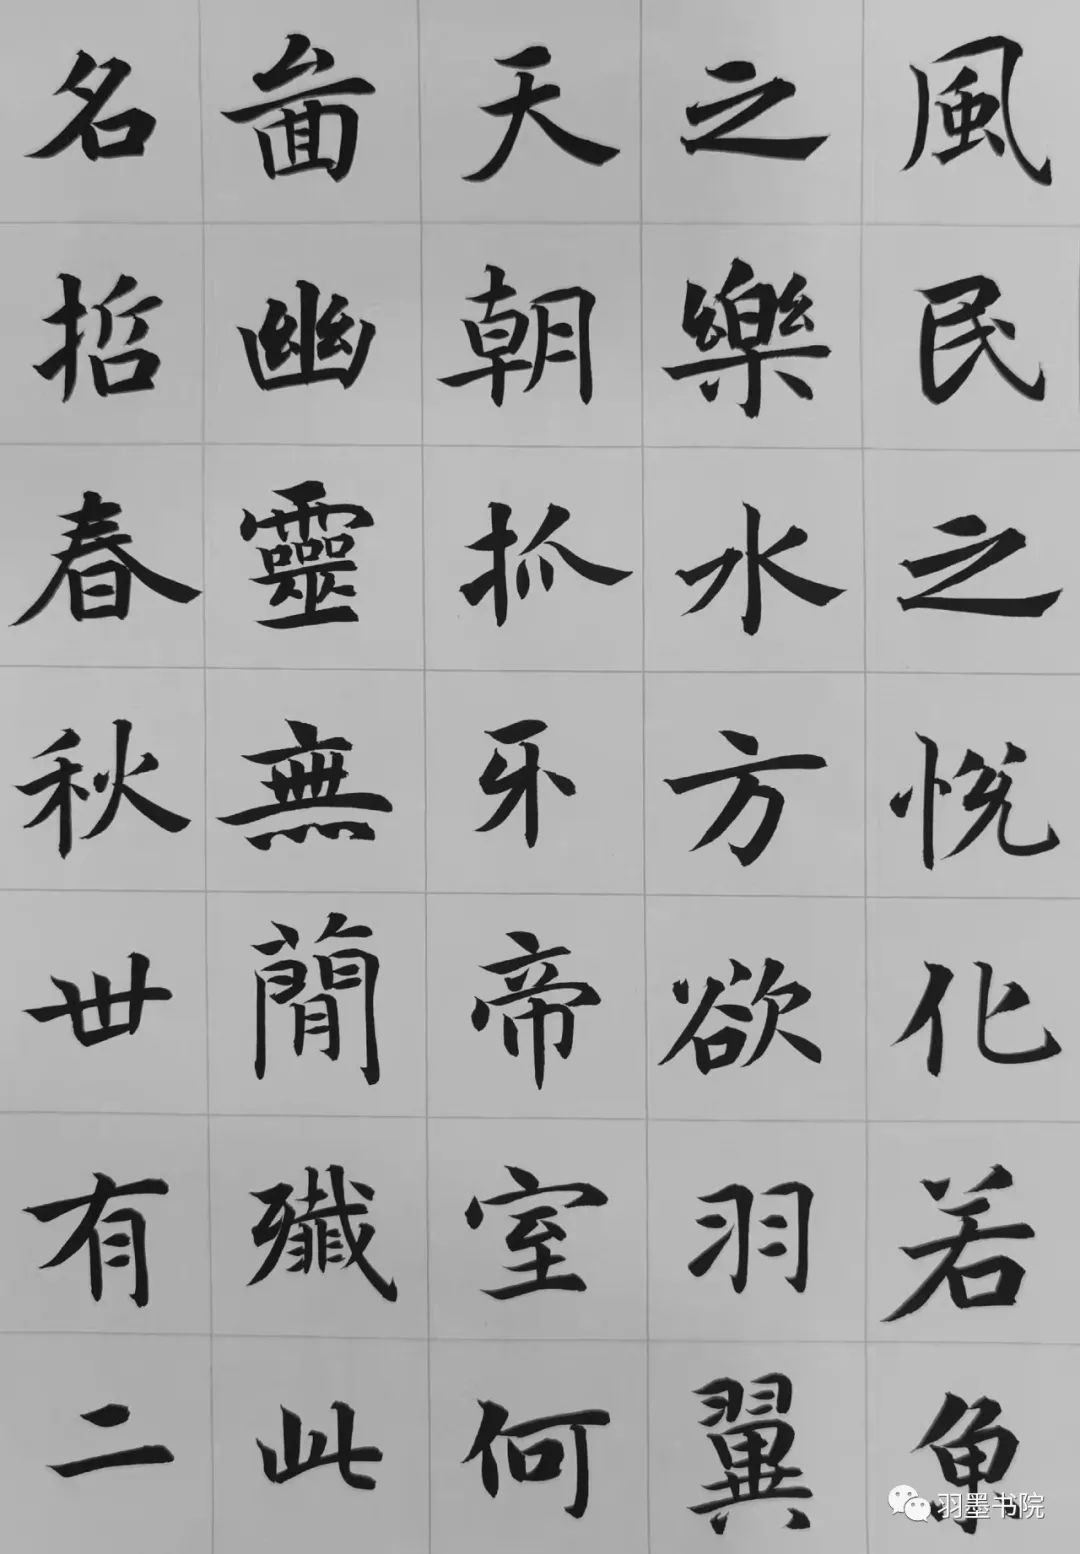 風民之悅化若魚
之樂水方欲羽翼
天朝抓牙帝室何
啚幽靈無蕑殲此
名哲春秋世有二
羽墨书院